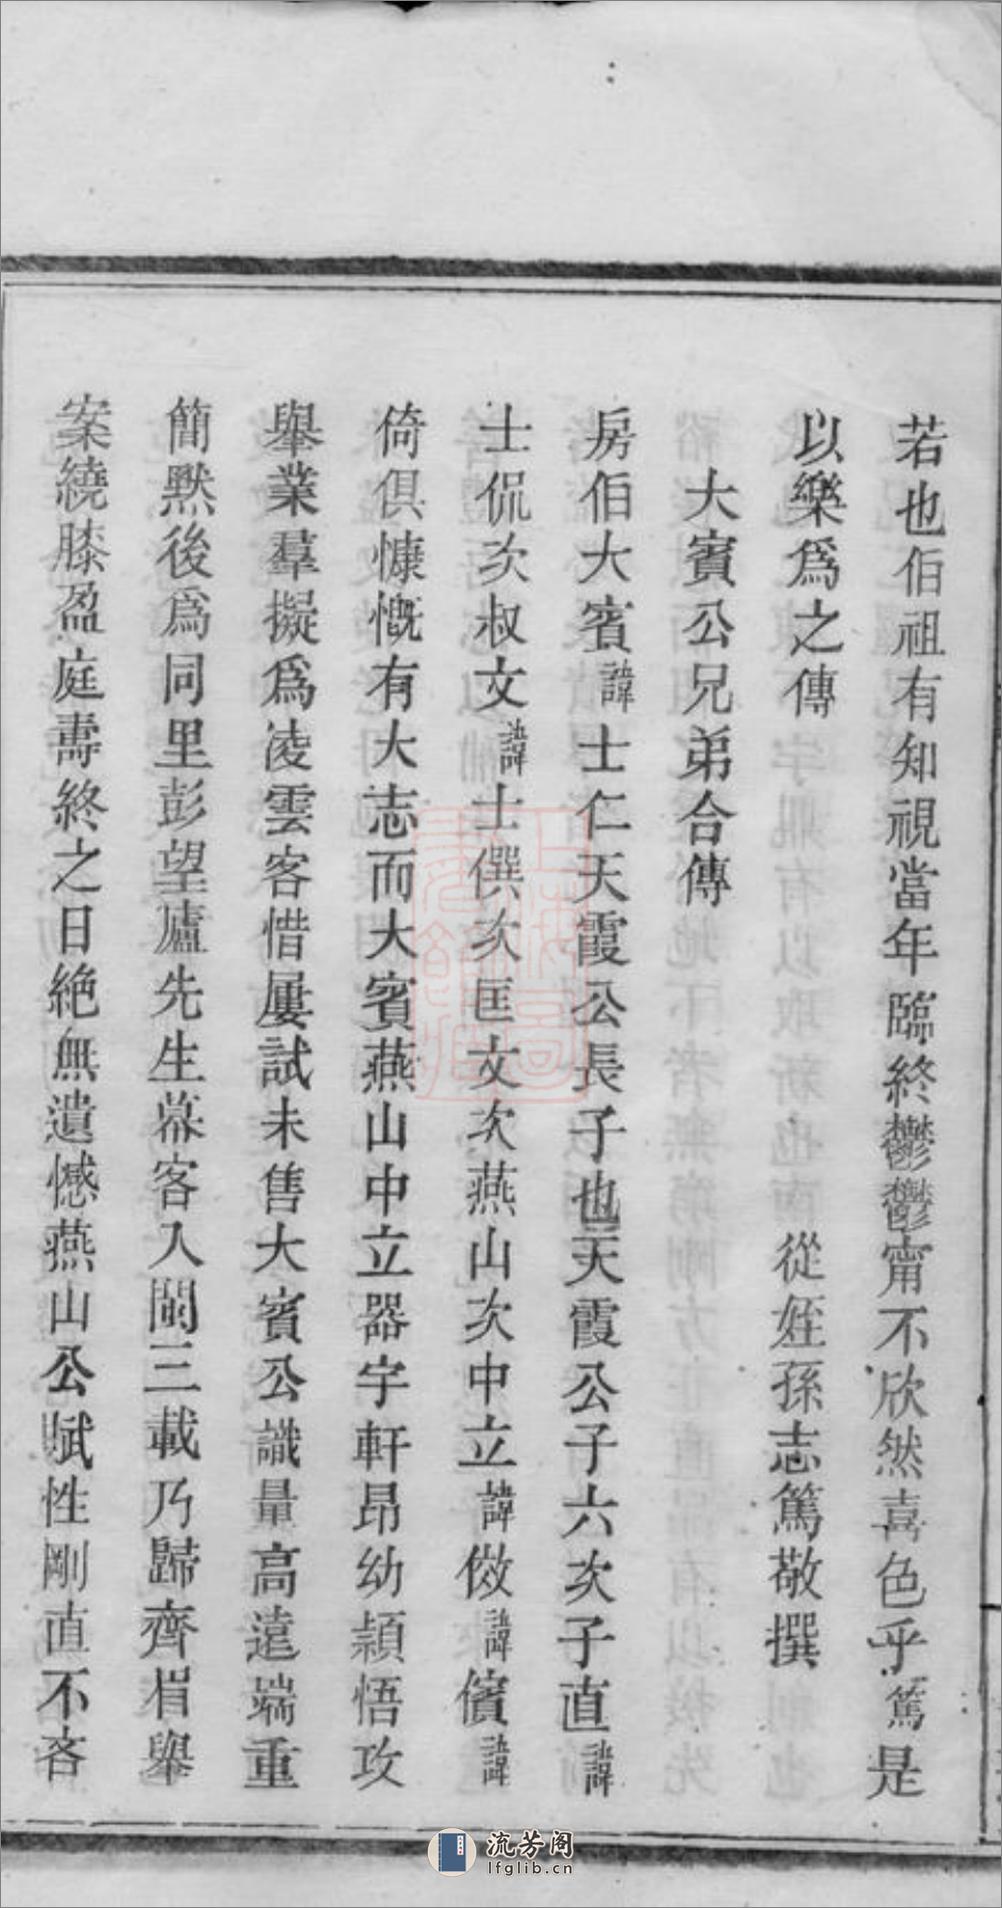 若也伯祖有知視當年臨終鬱鬱甯不欣然喜色乎篤是
以樂爲之傳
從姪孫志篤敬撰
大賓公兄弟合傳
房伯大賓諱士仁天霞公長子也天霞公子六次子直諱
士侃次叔文諱士僎次匡文次燕山次中立諱倣諱儐諱
倚俱慷慨有大志而大賓燕山中立器宇軒昂幼穎悟攻
舉業羣擬爲凌雲客惜屢試未售大賓公識量高遠端重
簡默後爲同里彭望廬先生幕客入閩三載乃歸齊眉舉
案繞膝盈庭壽終之日絶無遺憾燕山公賦性剛直不吝
流芳阁
lfglib.cn